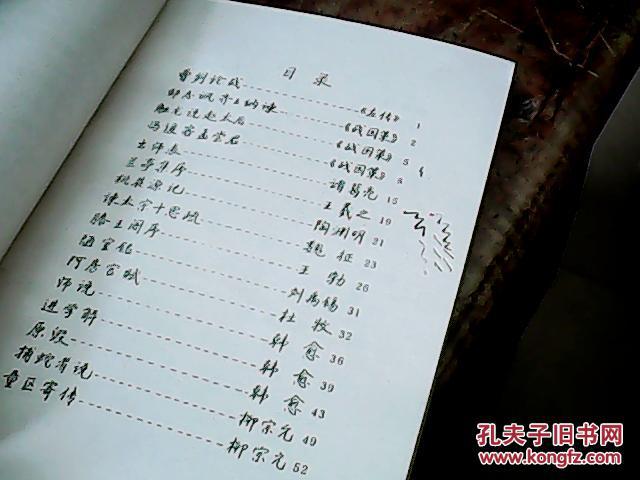 目录
曹刿论战 《左传》 1
邹忌讽齐王纳谏 《战国策》 2
触龙说赵太后 《战国策》 5
冯谖客孟尝君 《战国策》 8
出师表 诸葛亮 15
兰亭集序 王羲之 19
桃花源记 陶渊明 21
谏太宗十思疏 魏征 23
滕王阁序 王勃 26
陋室铭 刘禹锡 31
阿房宫赋 杜牧 32
师说 韩愈 36
进学解 韩愈 39
原毁 韩愈 43
捕蛇者说 柳宗元 49
童区寄传 柳宗元 52
孔夫子旧书网
www.kongfz.com